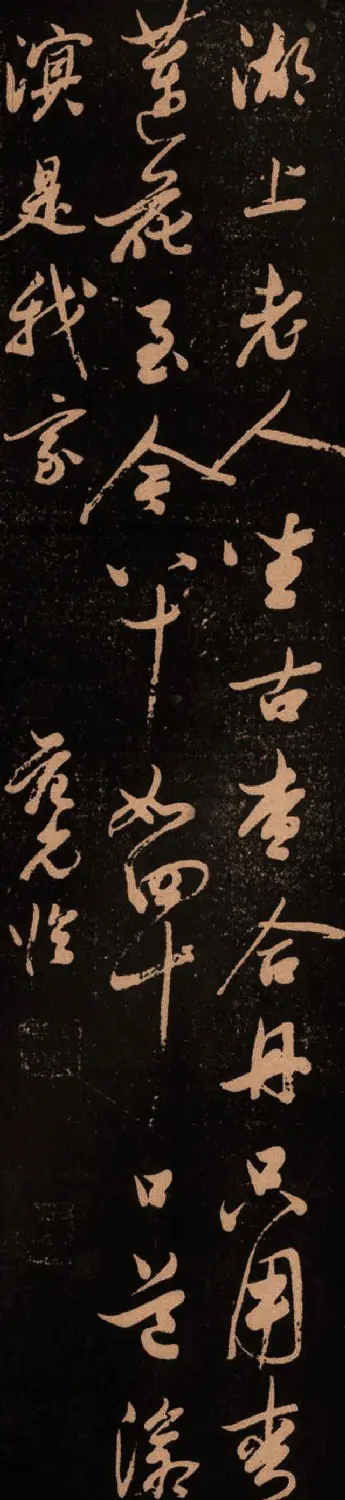 湖上老人坐古查合丹只用青
蓮花至今八十如四十口道滄
溟是我家
范允臨